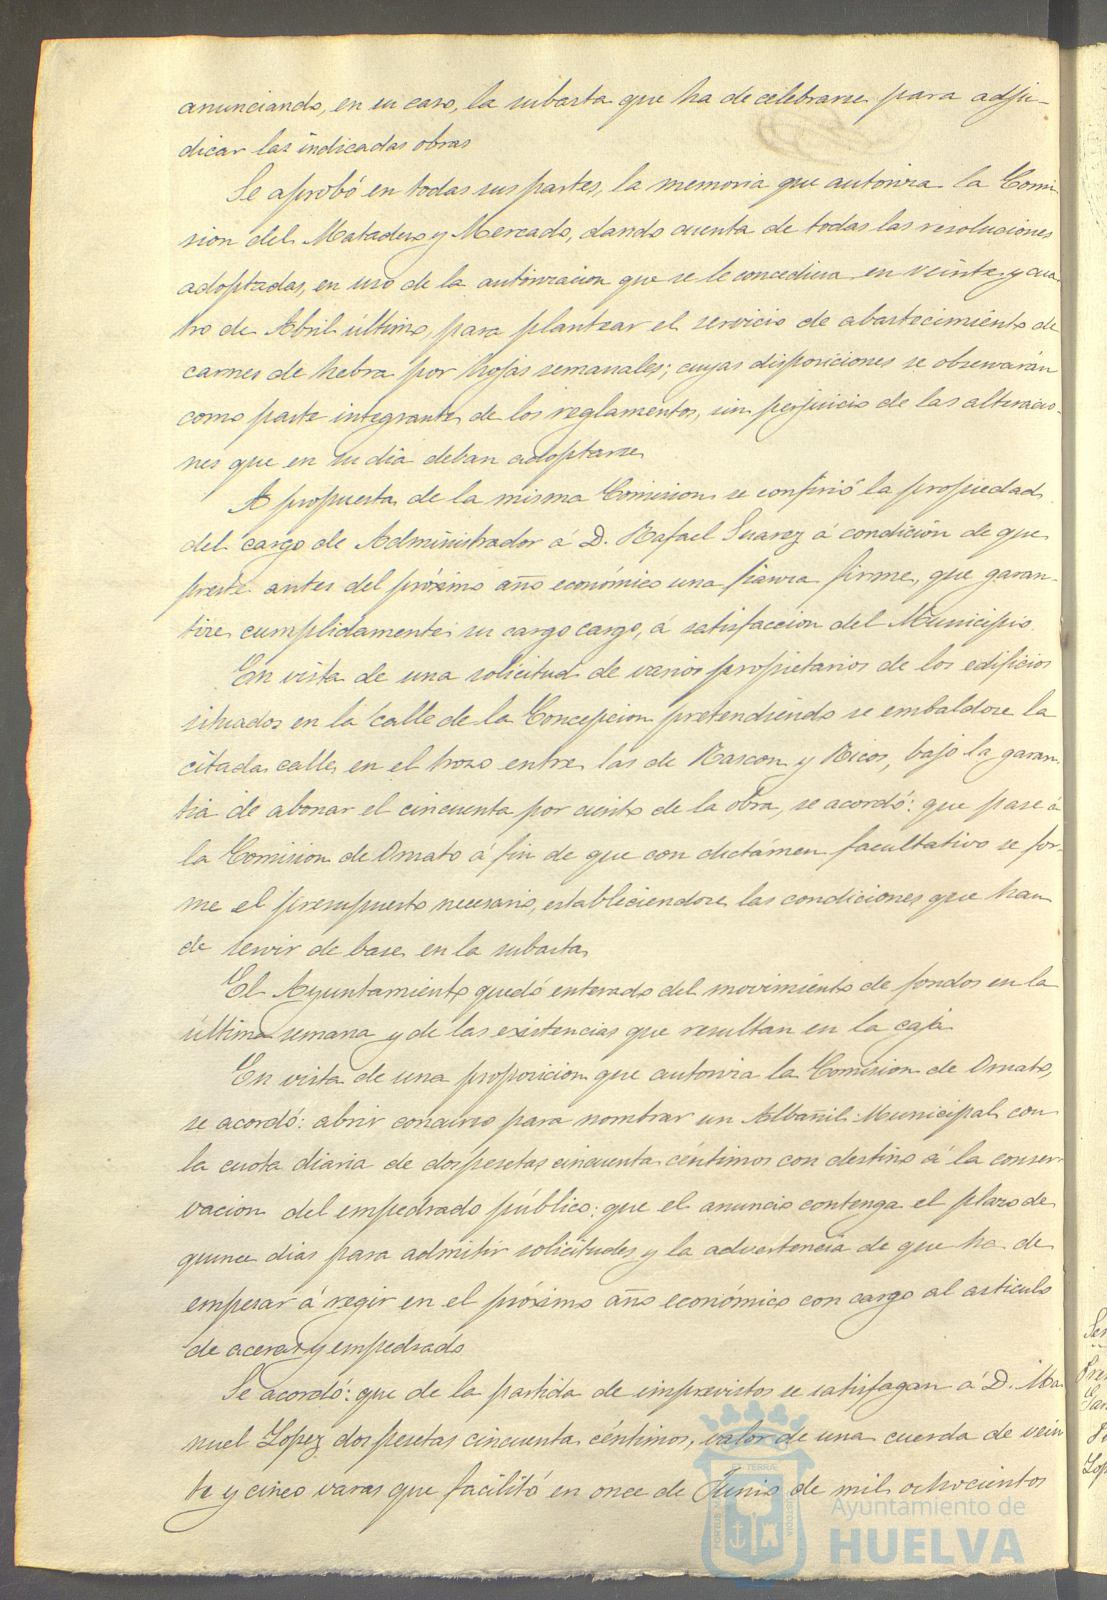 anunciando, en su caso, la subasta que ha de celebrarse para adju-
dicar las indicadas obras
Se aprobó en todas sus partes, la memoria que autoriza la Comi
sion del Matadero y Mercado, dando cuenta de todas las resoluciones
adoptadas, en uso de la autorizacion que se le concediera en veinte y cua
tro de Abril último, para plantear el servicio de abastecimiento de
carnes de hebra por hojas semanales; cuyas disposiciones se observarán
como parte integrante de los reglamentos, sin perjuicio de las alteracio-
nes que en su dia deban adoptarse
A propuesta de la misma Comision se confirió la propiedad
del cargo de Administrador á D. Rafael Suarez á condición de que
preste antes del próximo año económico una fianza firme, que garan-
tice cumplidamente su cargo cargo, á satisfaccion del Municipio.
En vista de una solicitud de varios propietarios de los edificios
situados en la calle de la Concepcion pretendiendo se embaldose la
citada calle en el trozo entre las de Rascon y Ricos, bajo la garan-
tia de abonar el cincuenta por ciento de la obra, se acordó: que pase á
la Comision de Ornato á fin de que con dictámen facultativo se for-
me el presupuesto necesario, estableciendose las condiciones que han
de servir de base en la subasta
El Ayuntamiento quedó enterado del movimiento de fondos en la
última semana y de las existencias que resultan en la caja
En vista de una proposicion que autoriza la Comision de Ornato,
se acordó: abrir concurso para nombrar un Albañil Municipal con
la cuota diaria de dos pesetas cincuenta céntimos con destino á la conser-
vacion del empedrado público: que el anuncio contenga el plazo de
quince dias para admitir solicitudes y la advertencia de que ha de
empezar á regir en el próximo año económico con cargo al articulo
de aceras y empedrado
Se acordó: que de la partida de imprevistos se satisfagan á D. Ma
nuel Lopez dos pesetas cincuenta céntimos, valor de una cuerda de vein
te y cinco varas que facilitó en once de Junio de mil ochocientos
Ayuntamiento de
HUELVA